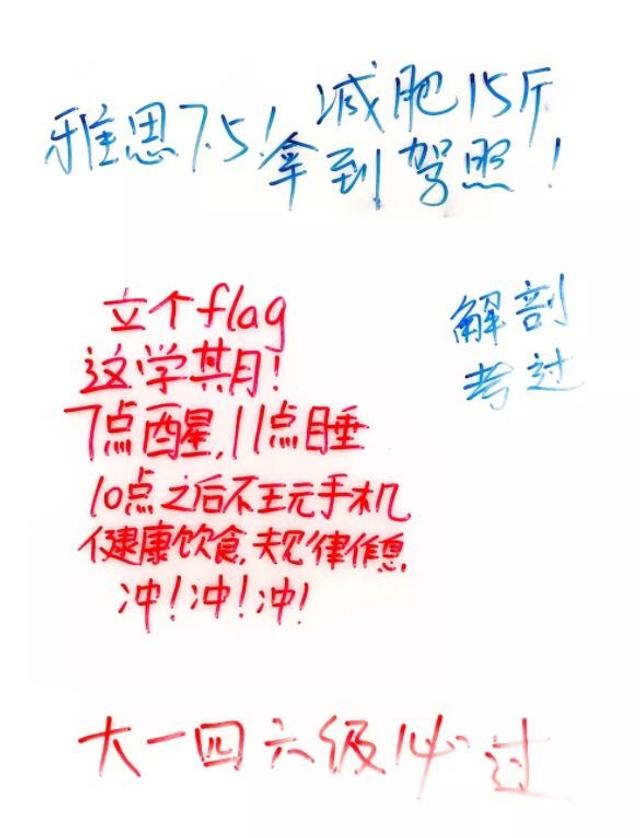 减肥15斤
雅思7.5!
拿到驾照!
立个flag
这学期!
7点醒,11点睡
10点之后不玩手机
健康饮食,规律作息
冲!冲!冲!
解剖
考过
大一四六级必过